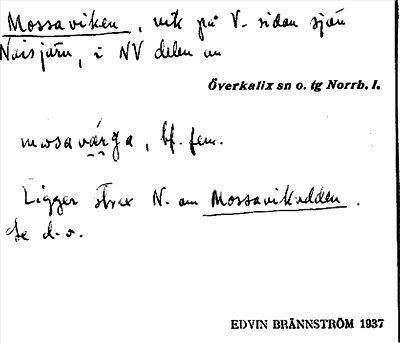 Mossaviken, vik på V. sidan sjön
Naisjärv, i NV delen av
Överkalix sn o. tg Norrb. l.
mɯsavárga, bf. fem.
Ligger strax N. om Mossavikudden.
Se d. o.
EDVIN BRÄNNSTRÖM 1937